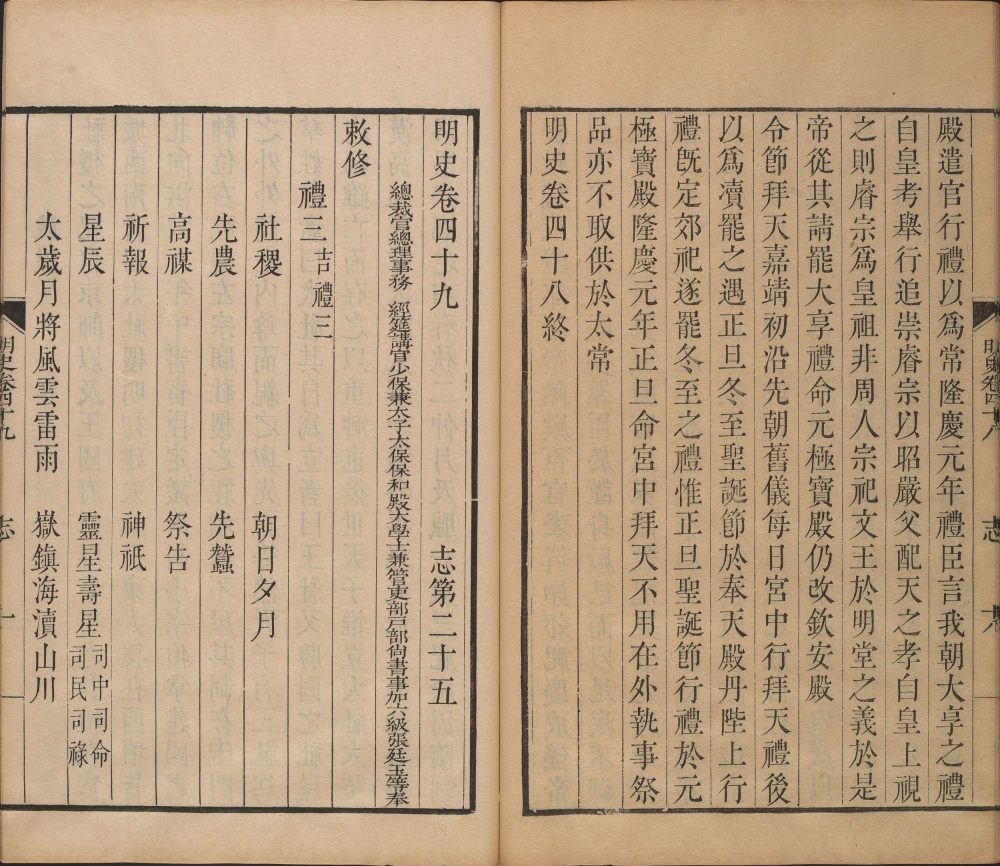 殿遣官行禮以爲常隆慶元年禮臣言我朝大享之禮
自皇考舉行追崇睿宗以昭嚴父配天之孝自皇上視
之則睿宗爲皇祖非周人宗祀文王於明堂之義於是
帝從其請罷大享禮命元極寶殿仍改欽安殿
令節拜天嘉靖初沿先朝舊儀每日宮中行拜天禮後
以爲瀆罷之遇正旦冬至聖誕節於奉天殿丹陛上行
禮旣定郊祀遂罷冬至之禮惟正旦聖誕節行禮於元
極寶殿隆慶元年正旦命宮中拜天不用在外執事祭
品亦不取供於太常
明史卷四十八終
明史卷四十八 志 十八
明史卷四十九 志第二十五
總裁官總理事務 經筵講官少保兼太子太保保和殿大學士兼管吏部戶部尚書事加六級張廷玉等奉
敕修
禮三 吉禮三
社稷 朝日夕月
先農 先蠶
高禖 祭告
祈報 神祇
星辰 靈星壽星 司中司命 司民司祿
太歲月將風雲雷雨 嶽鎮海瀆山川
明史卷四十九 志 一